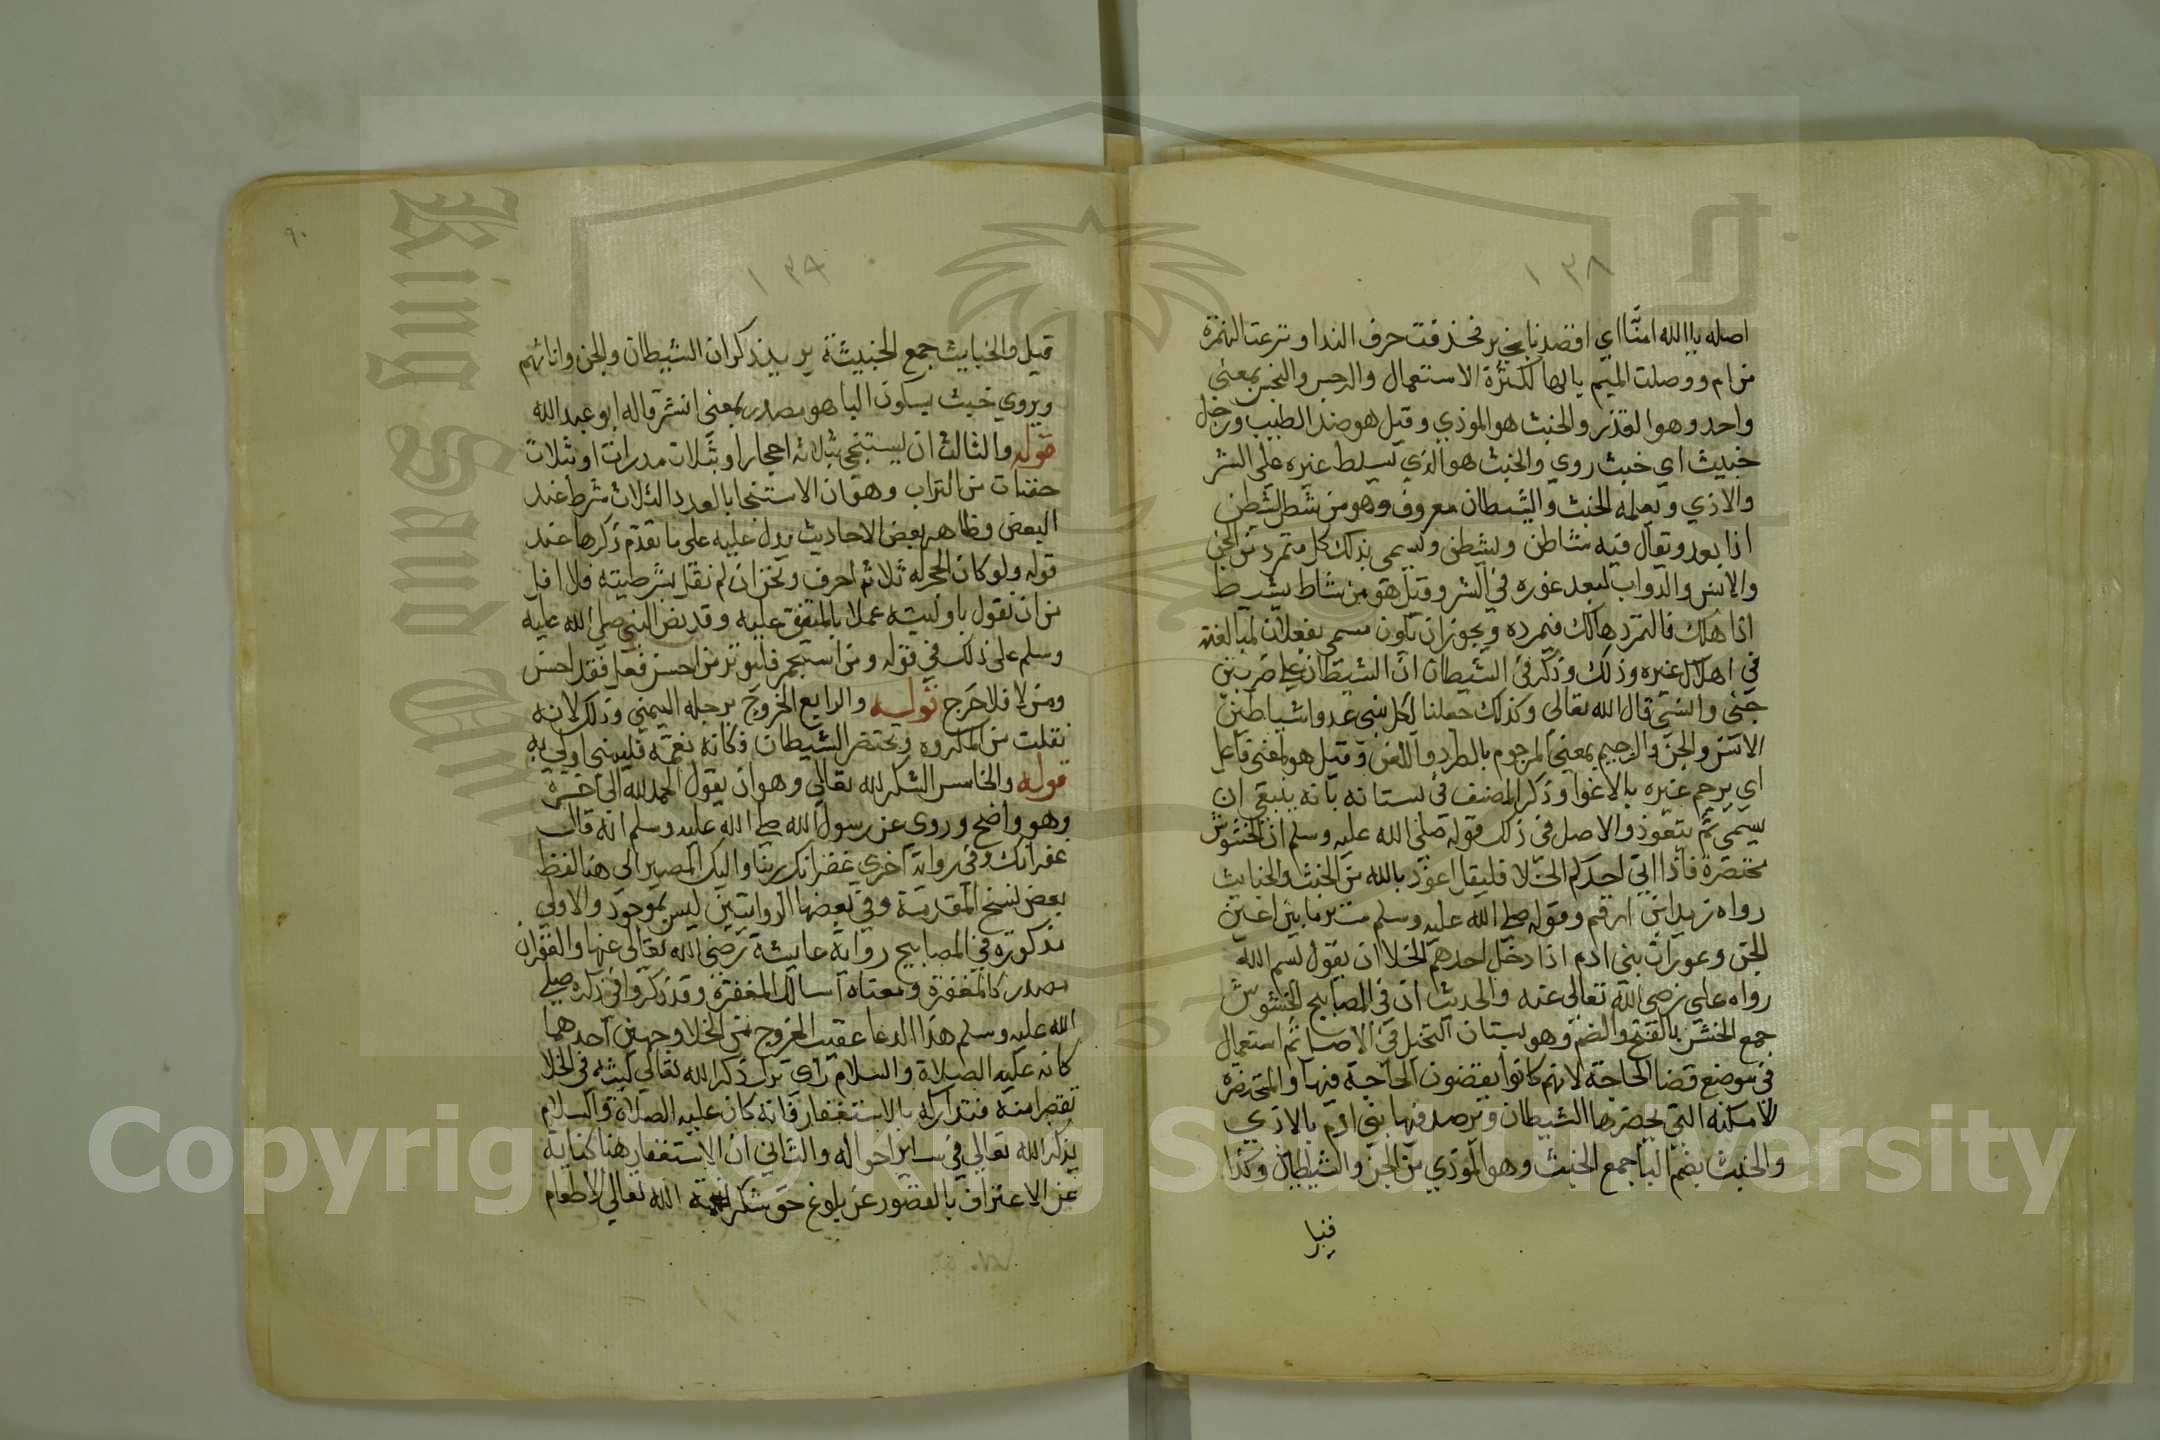 ١٣٨
اصله يا الله امنّا اي اقصدنا بخير فحذفت حرف الندا ونزعت الهمزة
من ام ووصلت الميم بالها لكثرة الاستعمال والرجس والنجس بمعني
واحد وهو القذر والخبث هو الموذي وقيل هو ضد الطيب ورجل
خبيث اي خبث روي والخبث هو الذي تسلط غيره علي الشر
والاذي ويعلمه الخبث والشيطان معروف وهو من شطن الشطن
اذا بعد ويقال فيه شاطن وتشطن ويسمي بذلك كل متمرد من الجن
والانس والدواب لبعد غوره في الشر وقيل هو من شاط يشيط
اذا هلك فالتمرد هالك فتمرده ويجوز ان تكون مسمي بفعلان لمبالغته
في اهلاك غيره وذلك وذكر في الشيطان ان الشيطان علي ضربين
جني وانسي قال الله تعالي وكذلك جعلنا لكل نبي عدوا شياطين
الانس والجن والرجيم بمعني المرجوم بالطرد واللعن وقيل هو بمعني فاعل
اي يرجم غيره بالاغوا وذكر المصنف في بستانه بانه ينبغي ان
يسمي ثم يتعوذ والاصل في ذلك قوله صلي الله عليه وسلم ان الحشوش
محتضرة فاذا اتي احدكم الخلا فليقل اعوذ بالله من الخبث والخبايث
رواه زيد ابن ارقم وقوله صلي الله عليه وسلم ستر ما بين اعين
الجن وعورات بني ادم اذا دخل احدهم الخلا ان يقول بسم الله
رواه علي رضي الله تعالي عنه والحديث ان في المصابيح الحشوش
جمع الحش بالفتح والضم وهو بستان النخيل في الاصل ثم استعمال
في موضع قضا الحاجة لانهم كانوا يقضون الحاجة فيها والمحتضرة
الامكنة التي يحضرها الشيطان وترصد فيها بني ادم بالاذي
والخبث بضم البا جمع الخبث وهو الموذي من الجن والشيطان وكذا
قيل
١٣٩
٩٠
قيل والخبايث جمع الخبيثة يريد ذكران الشيطان والجن واناثهم
ويروي خبث بسكون البا هو مصدر بمعني الشر قاله ابو عبد الله
قوله والثالث ان يستنجي بثلاثة احجار او بثلاث مدرات او بثلاث
حفنات من التراب وهو ان الاستنجا بالعدد الثلاث شرط عند
البعض وظاهر بعض الاحاديث يدل عليه علي ما تقدم ذكرها عند
قوله ولو كان الحجر له ثلاثة احرف ونحن ان لم نقل بشرطيته فلا اقل
من ان نقول باولويته عملا بالمتفق عليه وقد نص النبي صلي الله عليه
وسلم علي ذلك في قوله ومن استجمر فليوتر من احسن فعل فقد احسن
ومن لا فلا حرج قوله والرابع الخروج برجله اليمني وذلك لانه
نقلت من المكروه ويحتضر الشيطان فكانه نعمة فليمني اولي به
قوله والخامس الشكر لله تعالي وهو ان يقول الحمد لله الي اخره
وهو واضح وروي عن رسول الله صلي الله عليه وسلم انه قال
غفرانك وفي رواية اخري غفرانك ربنا واليك المصير الي هنا لفظ
بعض نسخ المقدمة وفي بعضها الروايتين ليس بموجود والاولي
مذكورة في المصابيح رواية عايشة رضي الله تعالي عنها والغفران
مصدر كالمغفرة ومعناه اسالك المغفرة وقد ذكروا في ذكره صلي
الله عليه وسلم هذا الدعا عقيب الخروج من الخلا وجهين احدهما
كانه عليه الصلاة والسلام راي ترك ذكر الله تعالي لبثه في الخلا
تقصرا منه فتداركه بالاستغفار فانه كان عليه الصلاة والسلام
يذكر الله تعالي في ساير احواله والثاني ان الاستغفار هنا كناية
عن الاعتراف بالقصور عن بلوغ حق شكر نعمة الله تعالي الاطعام
King Saud University
1957
Copyright © King Saud University